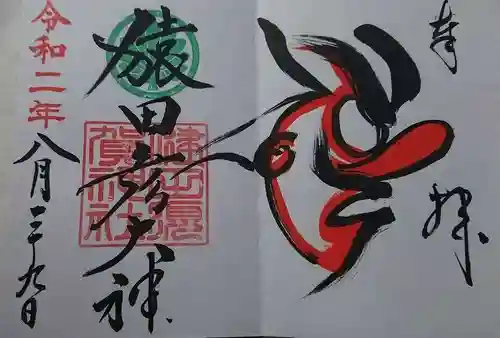 奉
拝
猿田彦大神
令和二年
八月二十九日